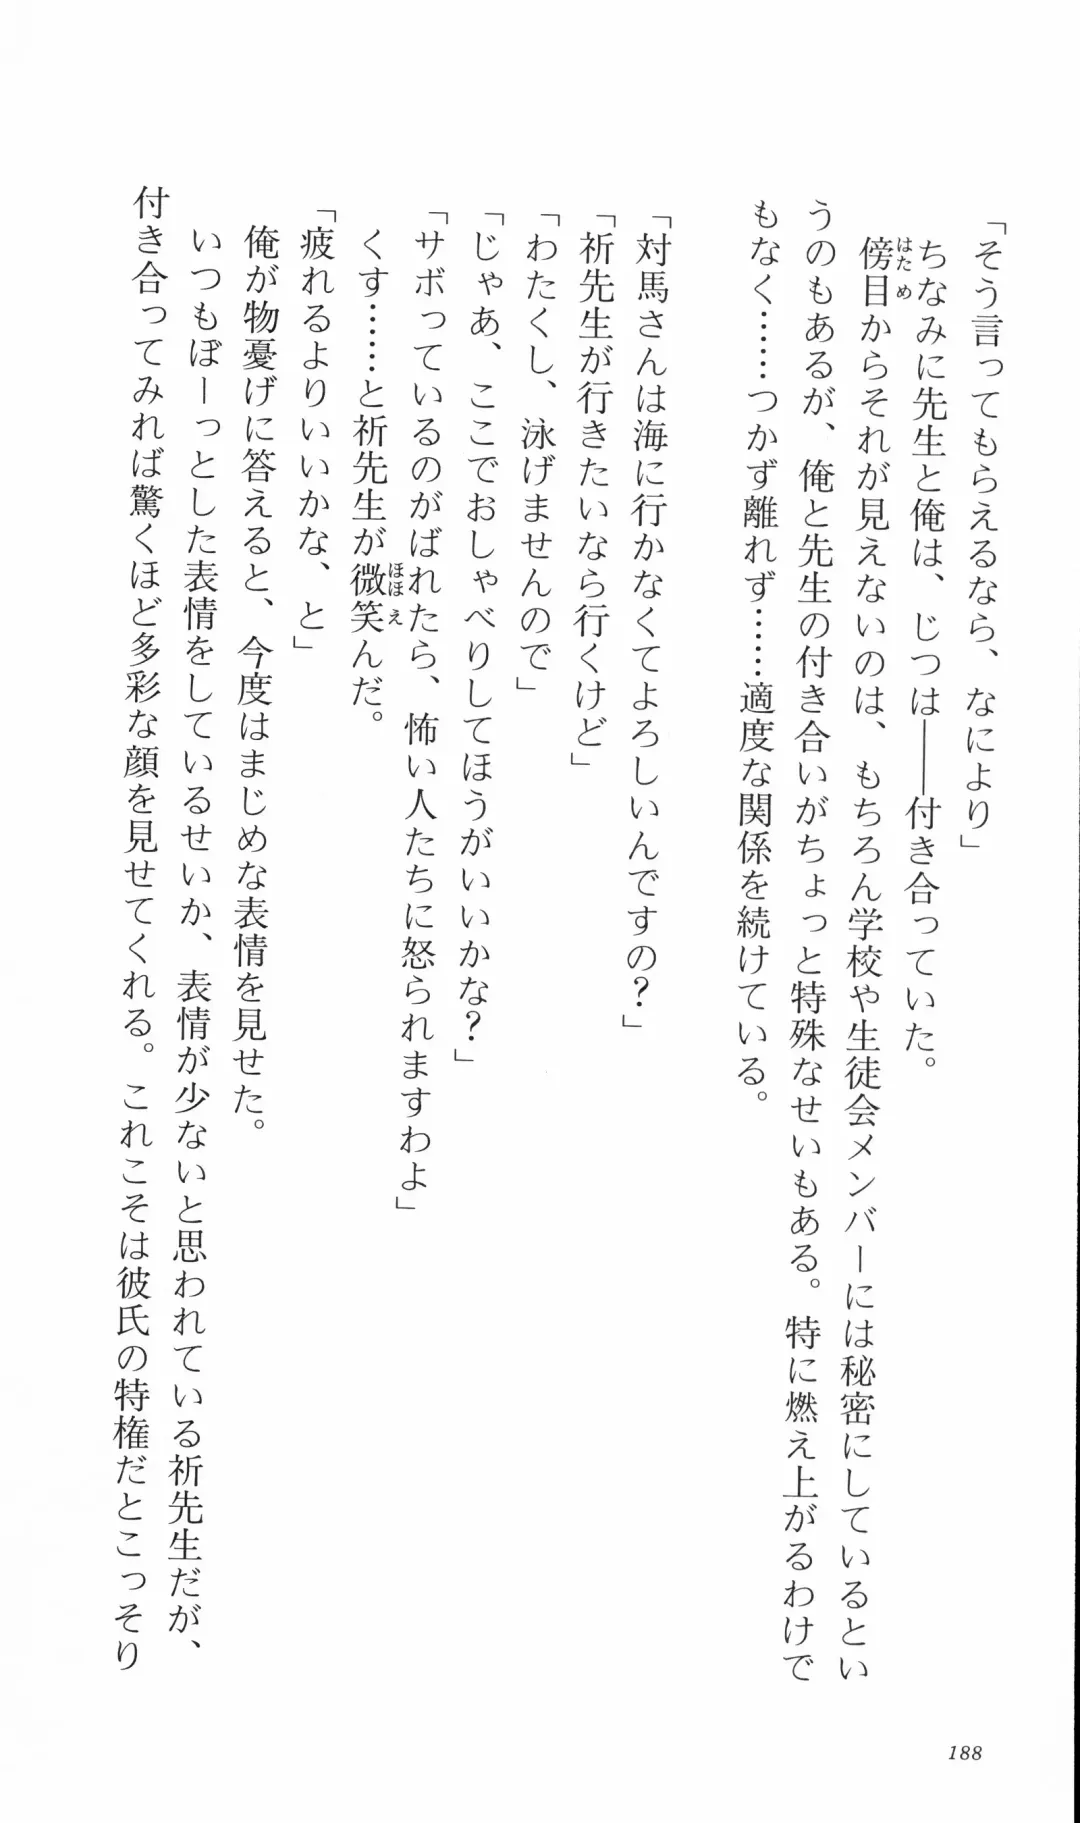 「そう言ってもらえるなら、なにより」
ちなみに先生と俺は、じつは――付き合っていた。
傍目からそれが見えないのは、もちろん学校や生徒会メンバーには秘密にしているとい
うのもあるが、俺と先生の付き合いがちょっと特殊なせいもある。特に燃え上がるわけで
もなく……つかず離れず……適度な関係を続けている。
「対馬さんは海に行かなくてよろしいんですの？」
「祈先生が行きたいなら行くけど」
「わたくし、泳げませんので」
「じゃあ、ここでおしゃべりしてほうがいいかな？」
「サボっているのがばれたら、怖い人たちに怒られますわよ」
くす……と祈先生が微笑んだ。
「疲れるよりいいかな、と」
俺が物憂げに答えると、今度はまじめな表情を見せた。
いつもぼーっとした表情をしているせいか、表情が少ないと思われている祈先生だが、
付き合ってみれば驚くほど多彩な顔を見せてくれる。これこそは彼氏の特権だとこっそり
188